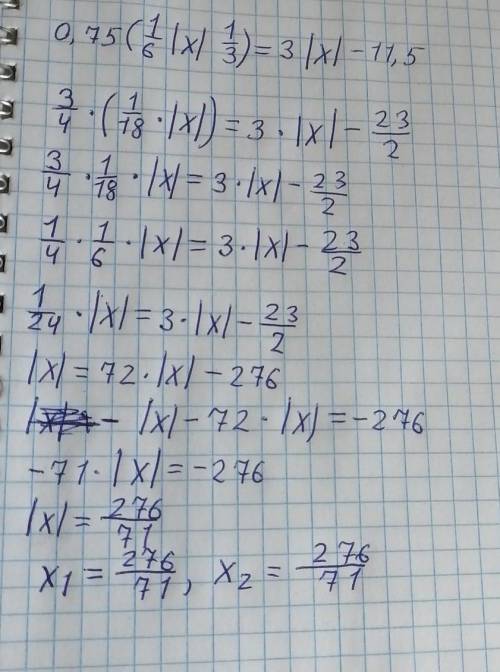 0,75(1/6 |x| 1/3) = 3|x| - 11,5
3/4 · (1/18 · |x|) = 3 · |x| - 23/2
3/4 · 1/18 · |x| = 3 · |x| - 23/2
1/4 · 1/6 · |x| = 3 · |x| - 23/2
1/24 · |x| = 3 · |x| - 23/2
|x| = 72 · |x| - 276
|x| - 72 · |x| = -276
-71 · |x| = -276
|x| = 276/71
x₁ = 276/71, x₂ = 276/71